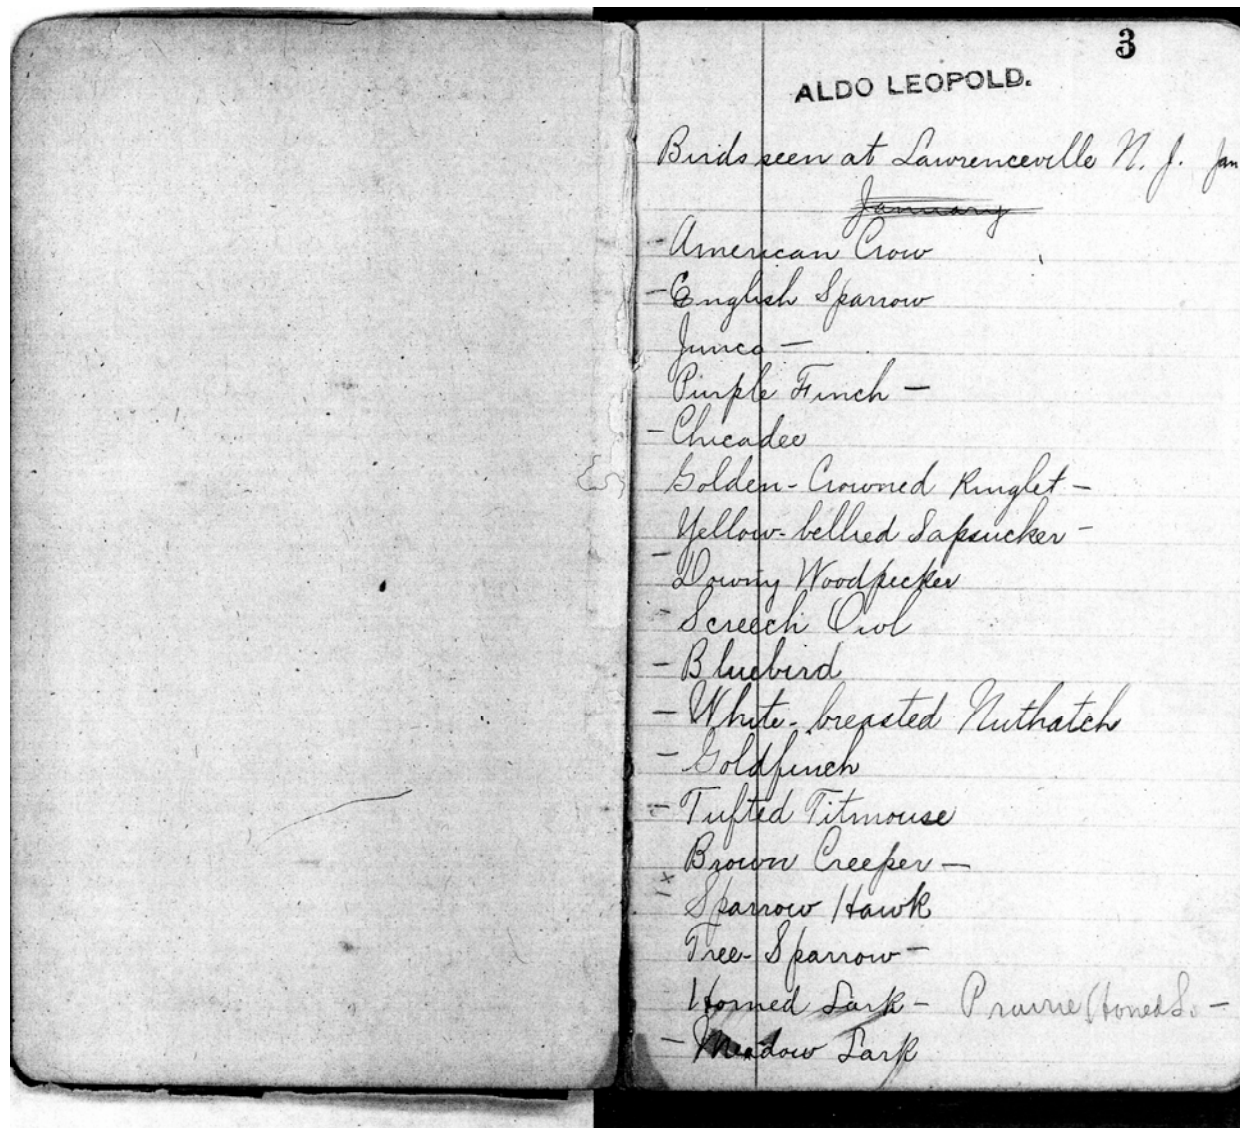 3
ALDO LEOPOLD.
Birds seen at Lawrenceville N. J. Jan
January
- American Crow
- English Sparrow
Junco -
Purple Finch -
- Chicadee
Golden-Crowned Kinglet -
Yellow-bellied Sapsucker -
- Downy Woodpecker
- Screech Owl
- Bluebird
- White-breasted Nuthatch
- Goldfinch
- Tufted Titmouse
Brown Creeper -
- x Sparrow Hawk
Tree Sparrow -
Horned Lark - Prairie Horned L. -
- Meadow Lark